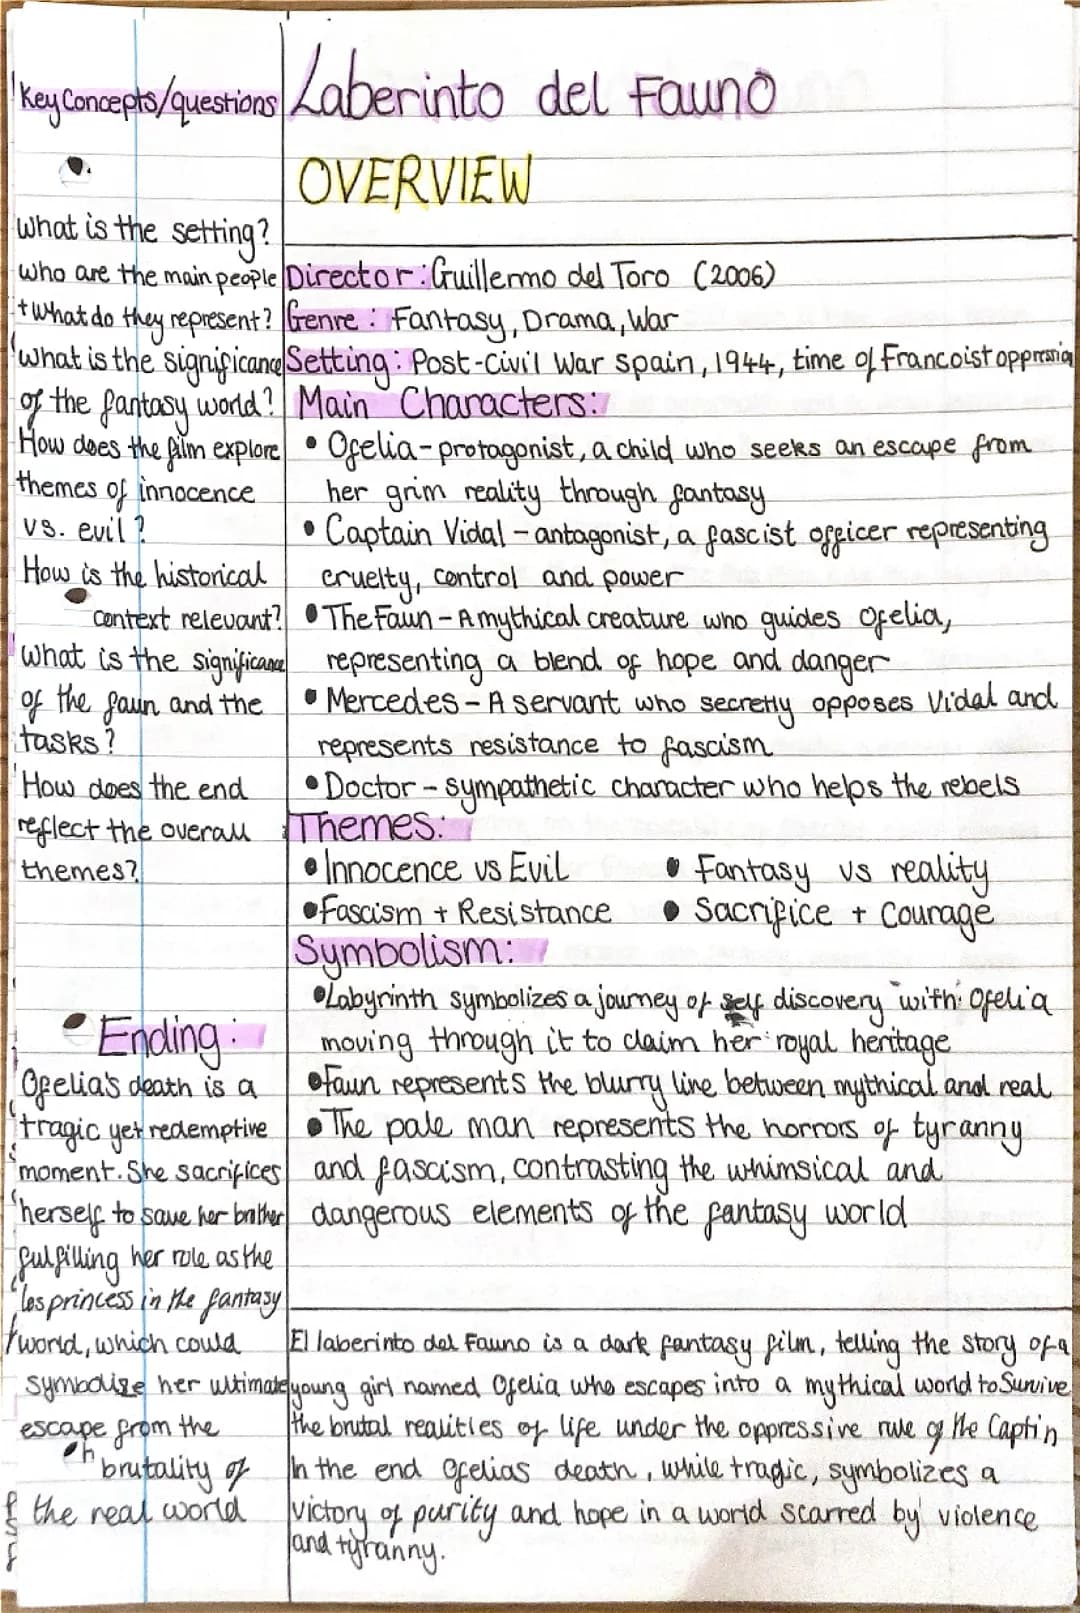 Key Concepts/questions
What is the setting?
Who are the main people
+ What do they represent?
What is the significance
of the fantasy world?
How does the film explore
themes of innocence
vs. evil?
How is the historical
context relevant?
What is the significance
of the faun and the
tasks?
How does the end
reflect the overall
themes?
Ending:
Ofelia's death is a
tragic yet redemptive
moment. She sacrifices
herself to save her brother
fulfilling her role as the
los princess in the fantasy
world, which could
symbolize her ultimate
escape from the
brutality of
the real world
Laberinto del Fauno
OVERVIEW
Director: Guillermo del Toro (2006)
Genre: Fantasy, Drama, War
Setting: Post-Civil War Spain, 1944, time of Francoist oppression
Main Characters:
• Ofelia - protagonist, a child who seeks an escape from
her grim reality through fantasy
• Captain Vidal - antagonist, a fascist officer representing
cruelty, control and power
• The Faun - A mythical creature who guides Ofelia,
representing a blend of hope and danger
• Mercedes - A servant who secretly opposes Vidal and
represents resistance to fascism
• Doctor - sympathetic character who helps the rebels
Themes:
• Innocence vs Evil • Fantasy vs reality
• Fascism + Resistance • Sacrifice + Courage
Symbolism:
• Labyrinth symbolizes a journey of self discovery with Ofelia
moving through it to claim her royal heritage
• Faun represents the blurry line between mythical and real
• The pale man represents the horrors of tyranny
and fascism, contrasting the whimsical and
dangerous elements of the fantasy world
El laberinto del Fauno is a dark fantasy film, telling the story of a
young girl named Ofelia who escapes into a mythical world to Survive
the brutal realities of life under the oppressive rule of the Captin
In the end Ofelias death, while tragic, symbolizes a
victory of purity and hope in a world scarred by violence
and tyranny.